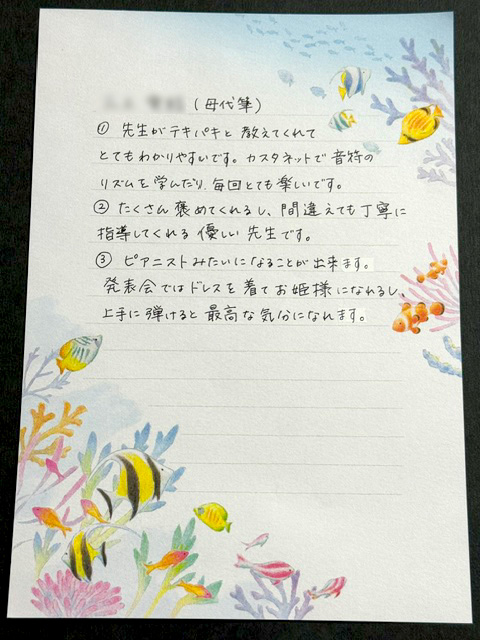 (母代筆)
① 先生がテキパキと教えてくれて
とてもわかりやすいです。カスタネットで音符の
リズムを学んだり、毎回とても楽しいです。
② たくさん褒めてくれるし、間違えても丁寧に
指導してくれる優しい先生です。
③ ピアニストみたいになることが出来ます。
発表会ではドレスを着てお姫様になれるし、
上手に弾けると最高な気分になれます。